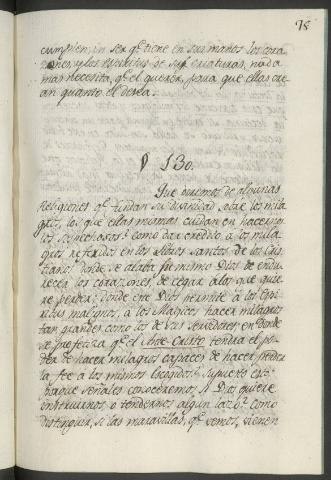 78
cumplen; un ser qe. tiene en sus manos los cora-
zones, y los espiritus de sus criaturas, nada
mas necesita, qe. el querer, para que ellas cre-
an quanto el desea.
§ 130.
Que diremos de algunas
Religiones qe. fundan su divinidad sobre los mila-
gros, los que ellas mismas cuidan en hacernos
los sospechosos? como dar credito a los mila-
gros referidos en los Libros Santos de los Cris-
tianos donde se alaba su mismo Dios de endu-
recer los corazones, de cegar a los que quie-
re perder; donde este Dios permite a los espi-
ritus malignos, a los Magicos hacer milagros
tan grandes como los de sus servidores; en donde
se profetiza qe. el Ante-Cristo tendra el po-
der de hacer milagros capaces de hacer
la fee a los mismos escogidos? supuesto esto
paque señales conoceremos, si Dios quiere
instruirnos o tendernos algun lazo? como
distinguir, si las maravillas, qe. vemos, vienen